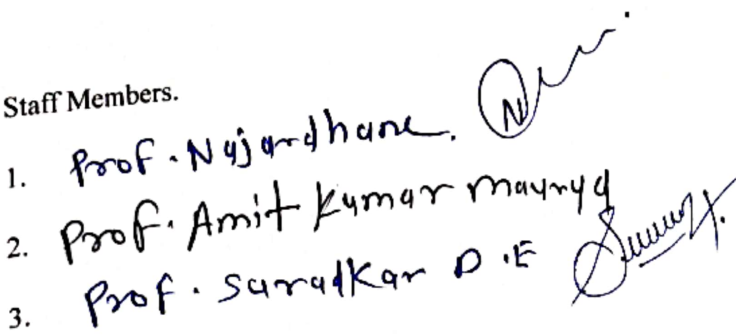 Staff Members.
1. Prof. Najardhane.
2. Prof. Amit Kumar Maurya
3. Prof. Saradkar D.E